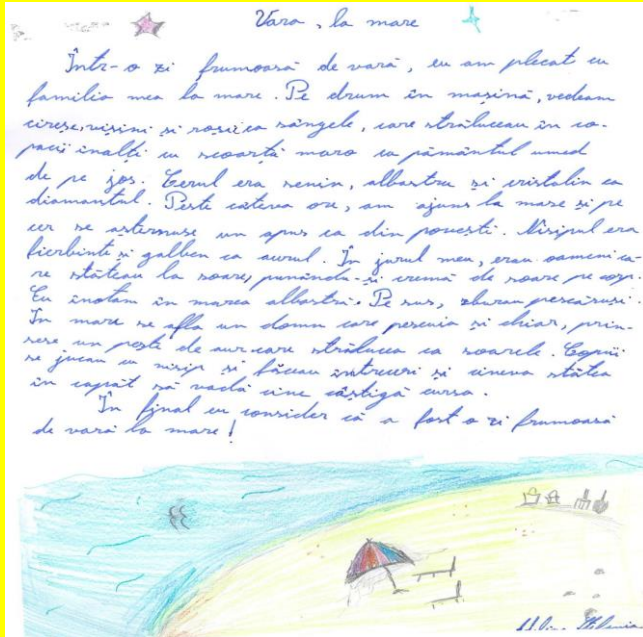 Vara, la mare
Într-o zi frumoasă de vară, eu am plecat cu
familia mea la mare. Pe drum în mașină, vedeam
cireșe, vișini și roșii ca sângele, care străluceau în co-
pacii înalți cu scoarță maro ca pământul umed
de pe jos. Cerul era senin, albastru și cristalin ca
diamantul. Peste câteva ore, am ajuns la mare și pe
cer se așternuse un apus ca din povești. Nisipul era
fierbinte și galben ca aurul. În jurul meu, erau oameni ca-
re stăteau la soare, punându-și cremă de soare pe corp.
Eu înotam în marea albastră. Pe sus, zburau pescăruși.
În mare se afla un domn care pescuia și chiar, prin-
sese un pește de aur care strălucea ca soarele. Copiii
se jucau cu nisip și făceau întreceri și cineva stătea
în capăt să vadă cine câștigă cursa.
În final eu consider că a fost o zi frumoasă
de vară la mare!